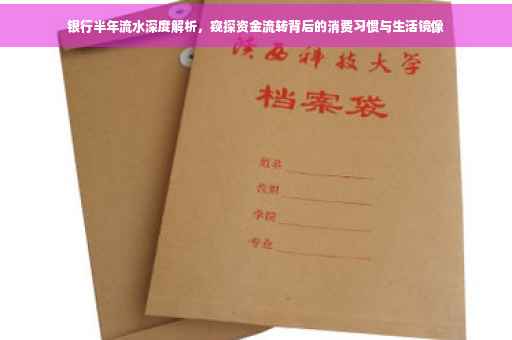 银行半年流水深度解析，窥探资金流转背后的消费习惯与生活镜像
陕西科技大学
档案袋
姓名
学院
专业